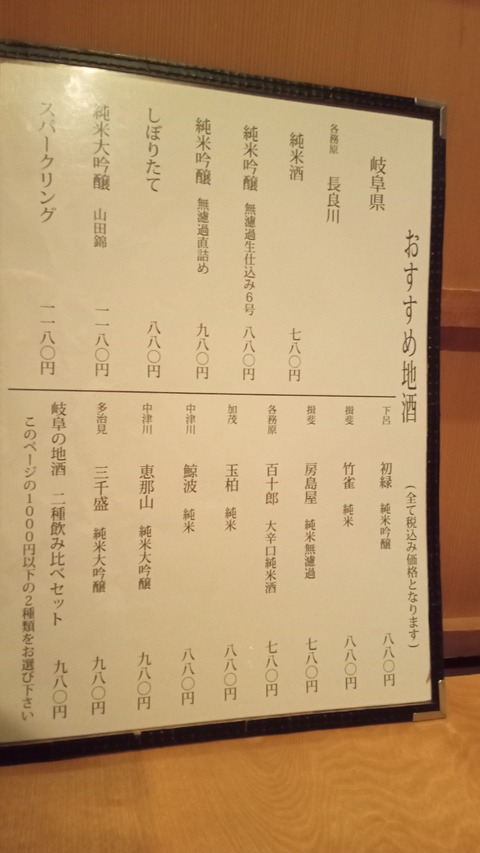 おすすめ地酒 (全て税込み価格となります)
岐阜県
各務原 長良川
純米酒 七八〇円
純米吟醸 無濾過生仕込み6号 八八〇円
純米吟醸 無濾過直詰め 九八〇円
しぼりたて 八八〇円
純米大吟醸 山田錦 一一八〇円
スパークリング 一一八〇円
下呂 初緑 純米吟醸 八八〇円
揖斐 竹雀 純米 八八〇円
揖斐 房島屋 純米無濾過 七八〇円
各務原 百十郎 大辛口純米酒 七八〇円
加茂 玉柏 純米 八八〇円
中津川 鯨波 純米 八八〇円
中津川 恵那山 純米大吟醸 九八〇円
多治見 三千盛 純米大吟醸 九八〇円
岐阜の地酒 二種飲み比べセット 九八〇円
このページの1000円以下の2種類をお選び下さい